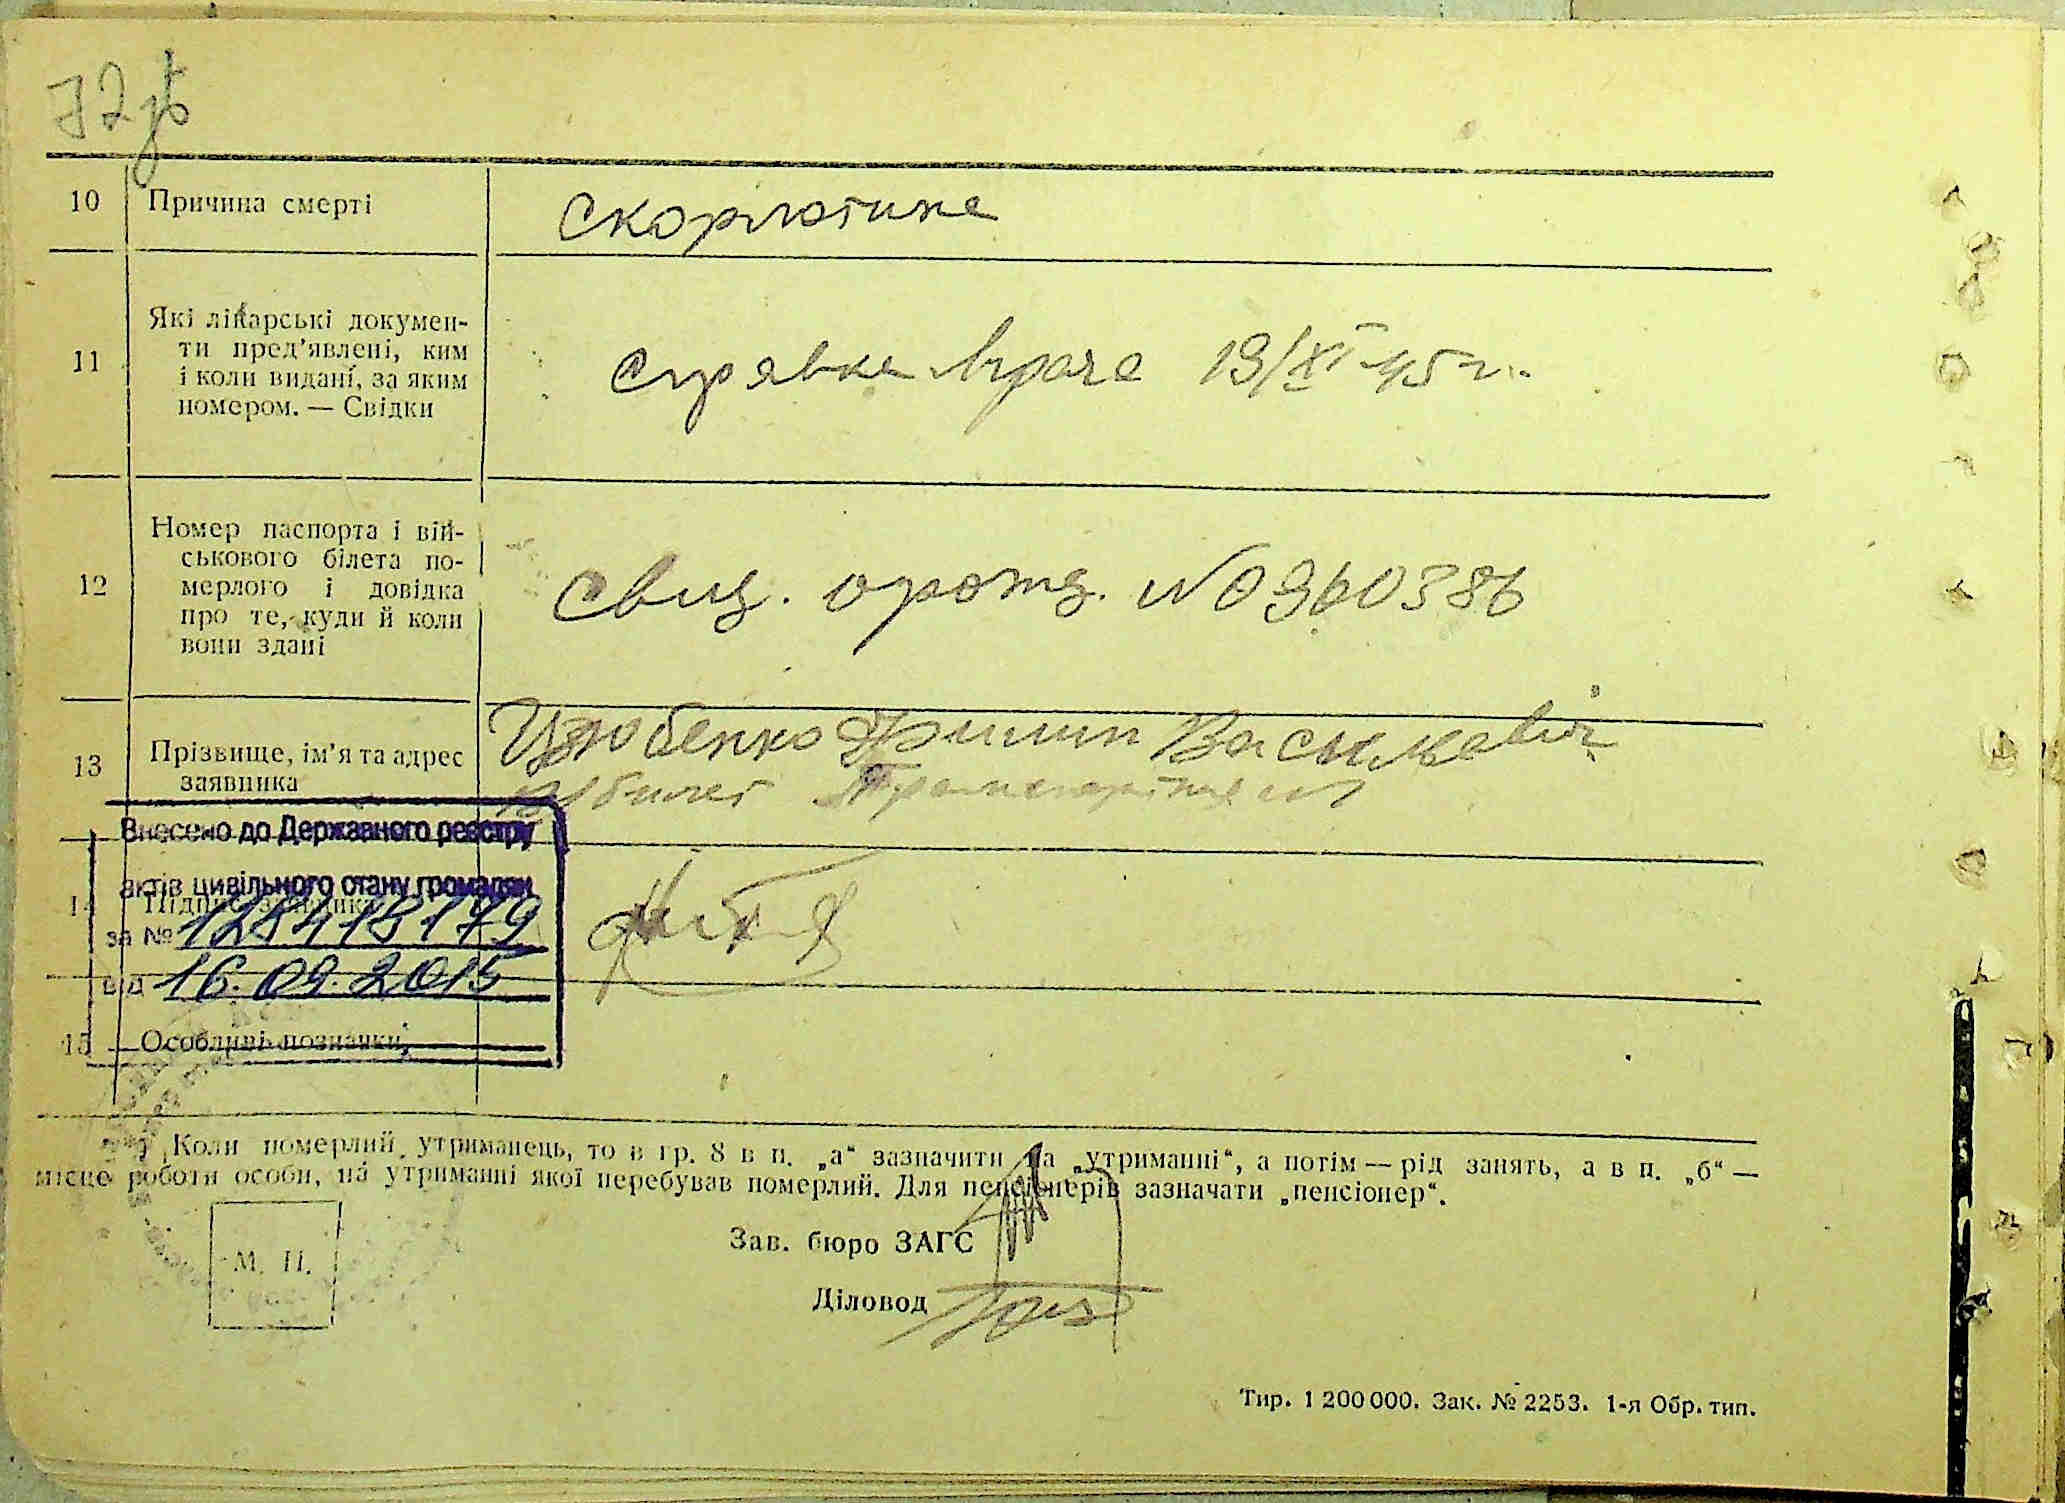 72
10 Причина смерті
Скорлотина
11 Які лікарські докумен-
ти пред'явлені, ким
і коли видані, за яким
номером. — Свідки
Справка врача 19/XI 45 г.
12 Номер паспорта і вій-
ськового білета по-
мерлого і довідка
про те, куди й коли
вони здані
свид. о рожд. № 0960386
13 Прізвище, ім'я та адрес
заявника
Цюбенко Филип Васильевич
14 Підпис заявника
Внесено до Державного реєстру
актів цивільного стану громадян
за № 128418179
від 16.09.2015
15 Особливі позначки
Коли померлий утриманець, то в гр. 8 в п. „а“ зазначити на „утриманні“, а потім — рід занять, а в п. „б“ —
місце роботи особи, на утриманні якої перебував померлий. Для пенсіонерів зазначати „пенсіонер“.
М. П.
Зав. бюро ЗАГС
Діловод
Тир. 1 200 000. Зак. № 2253. 1-я Обр. тип.